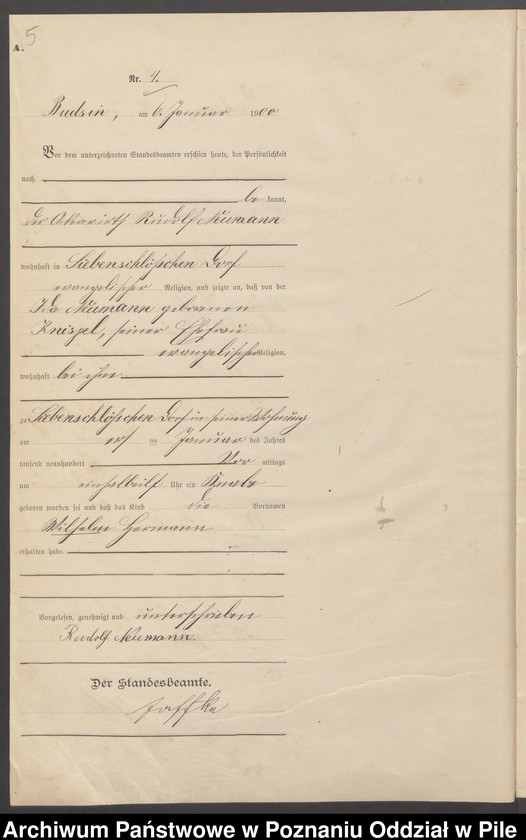 5
A.
Nr. 4.
Budsin, am 6. Januar 1900
Vor dem unterzeichneten Standesbeamten erschien heute, der Persönlichkeit
nach
be kannt,
der Ackerwirth Rudolf Neumann
wohnhaft in Siebenschlößchen Dorf
evangelischer Religion, und zeigte an, daß von der
Ida Neumann geborenen
Knispel, seiner Ehefrau
evangelischer Religion,
wohnhaft bei ihm
zu Siebenschlößchen Dorf in seiner Wohnung
am ersten im Januar des Jahres
tausend neunhundert Vor mittags
um einhalbelf Uhr ein Knabe
geboren worden sei und daß das Kind die Vornamen
Wilhelm Hermann
erhalten habe.
Vorgelesen, genehmigt und unterschrieben
Rudolf Neumann.
Der Standesbeamte.
Archiwum Państwowe w Poznaniu Oddział w Pile